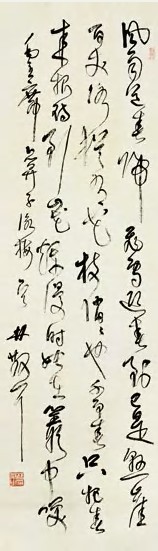 風雨送春歸飛雪迎春到已是懸崖
百丈冰猶有花枝俏〻也不争春只把春
来報待到山花爛漫时她在叢中咲
毛主席卜算子詠梅 林散耳